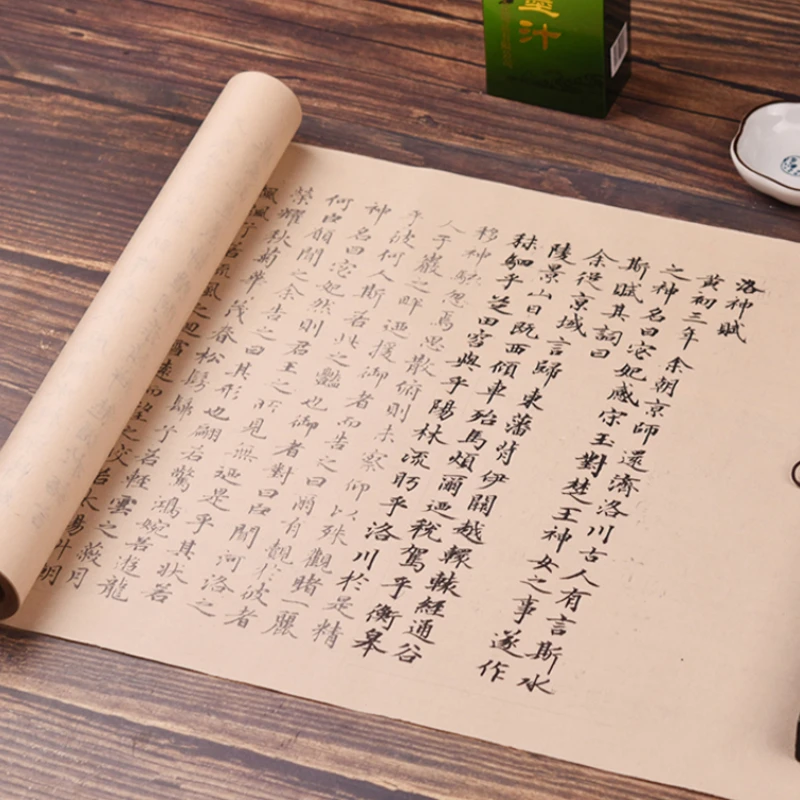 墨汁
洛神賦
黃初三年余朝京師還濟洛川古人有言斯水
之神名曰宓妃感宗玉對楚王神女之事遂作
斯賦其詞曰
余從京域言歸東藩背伊闕越轘轅經通谷
陵景山日既西傾車殆馬煩爾迺稅駕乎衡皋
秣駟乎芝田容與乎陽林流眄乎洛川於是精
移神駭忽焉思散俯則未察仰以殊觀睹一麗
人于巖之畔迺援御者而告之曰爾有覿於彼者
乎彼何人斯若此之豔也御者對曰臣聞河洛之
神名曰宓妃然則君王之所見無迺是乎其狀若
何臣願聞之余告之曰其形也翩若驚鴻婉若遊龍
榮耀秋菊華茂春松髣髴兮若輕雲之蔽月
飄颻兮若流風之迴雪遠而望之皎若太陽升朝